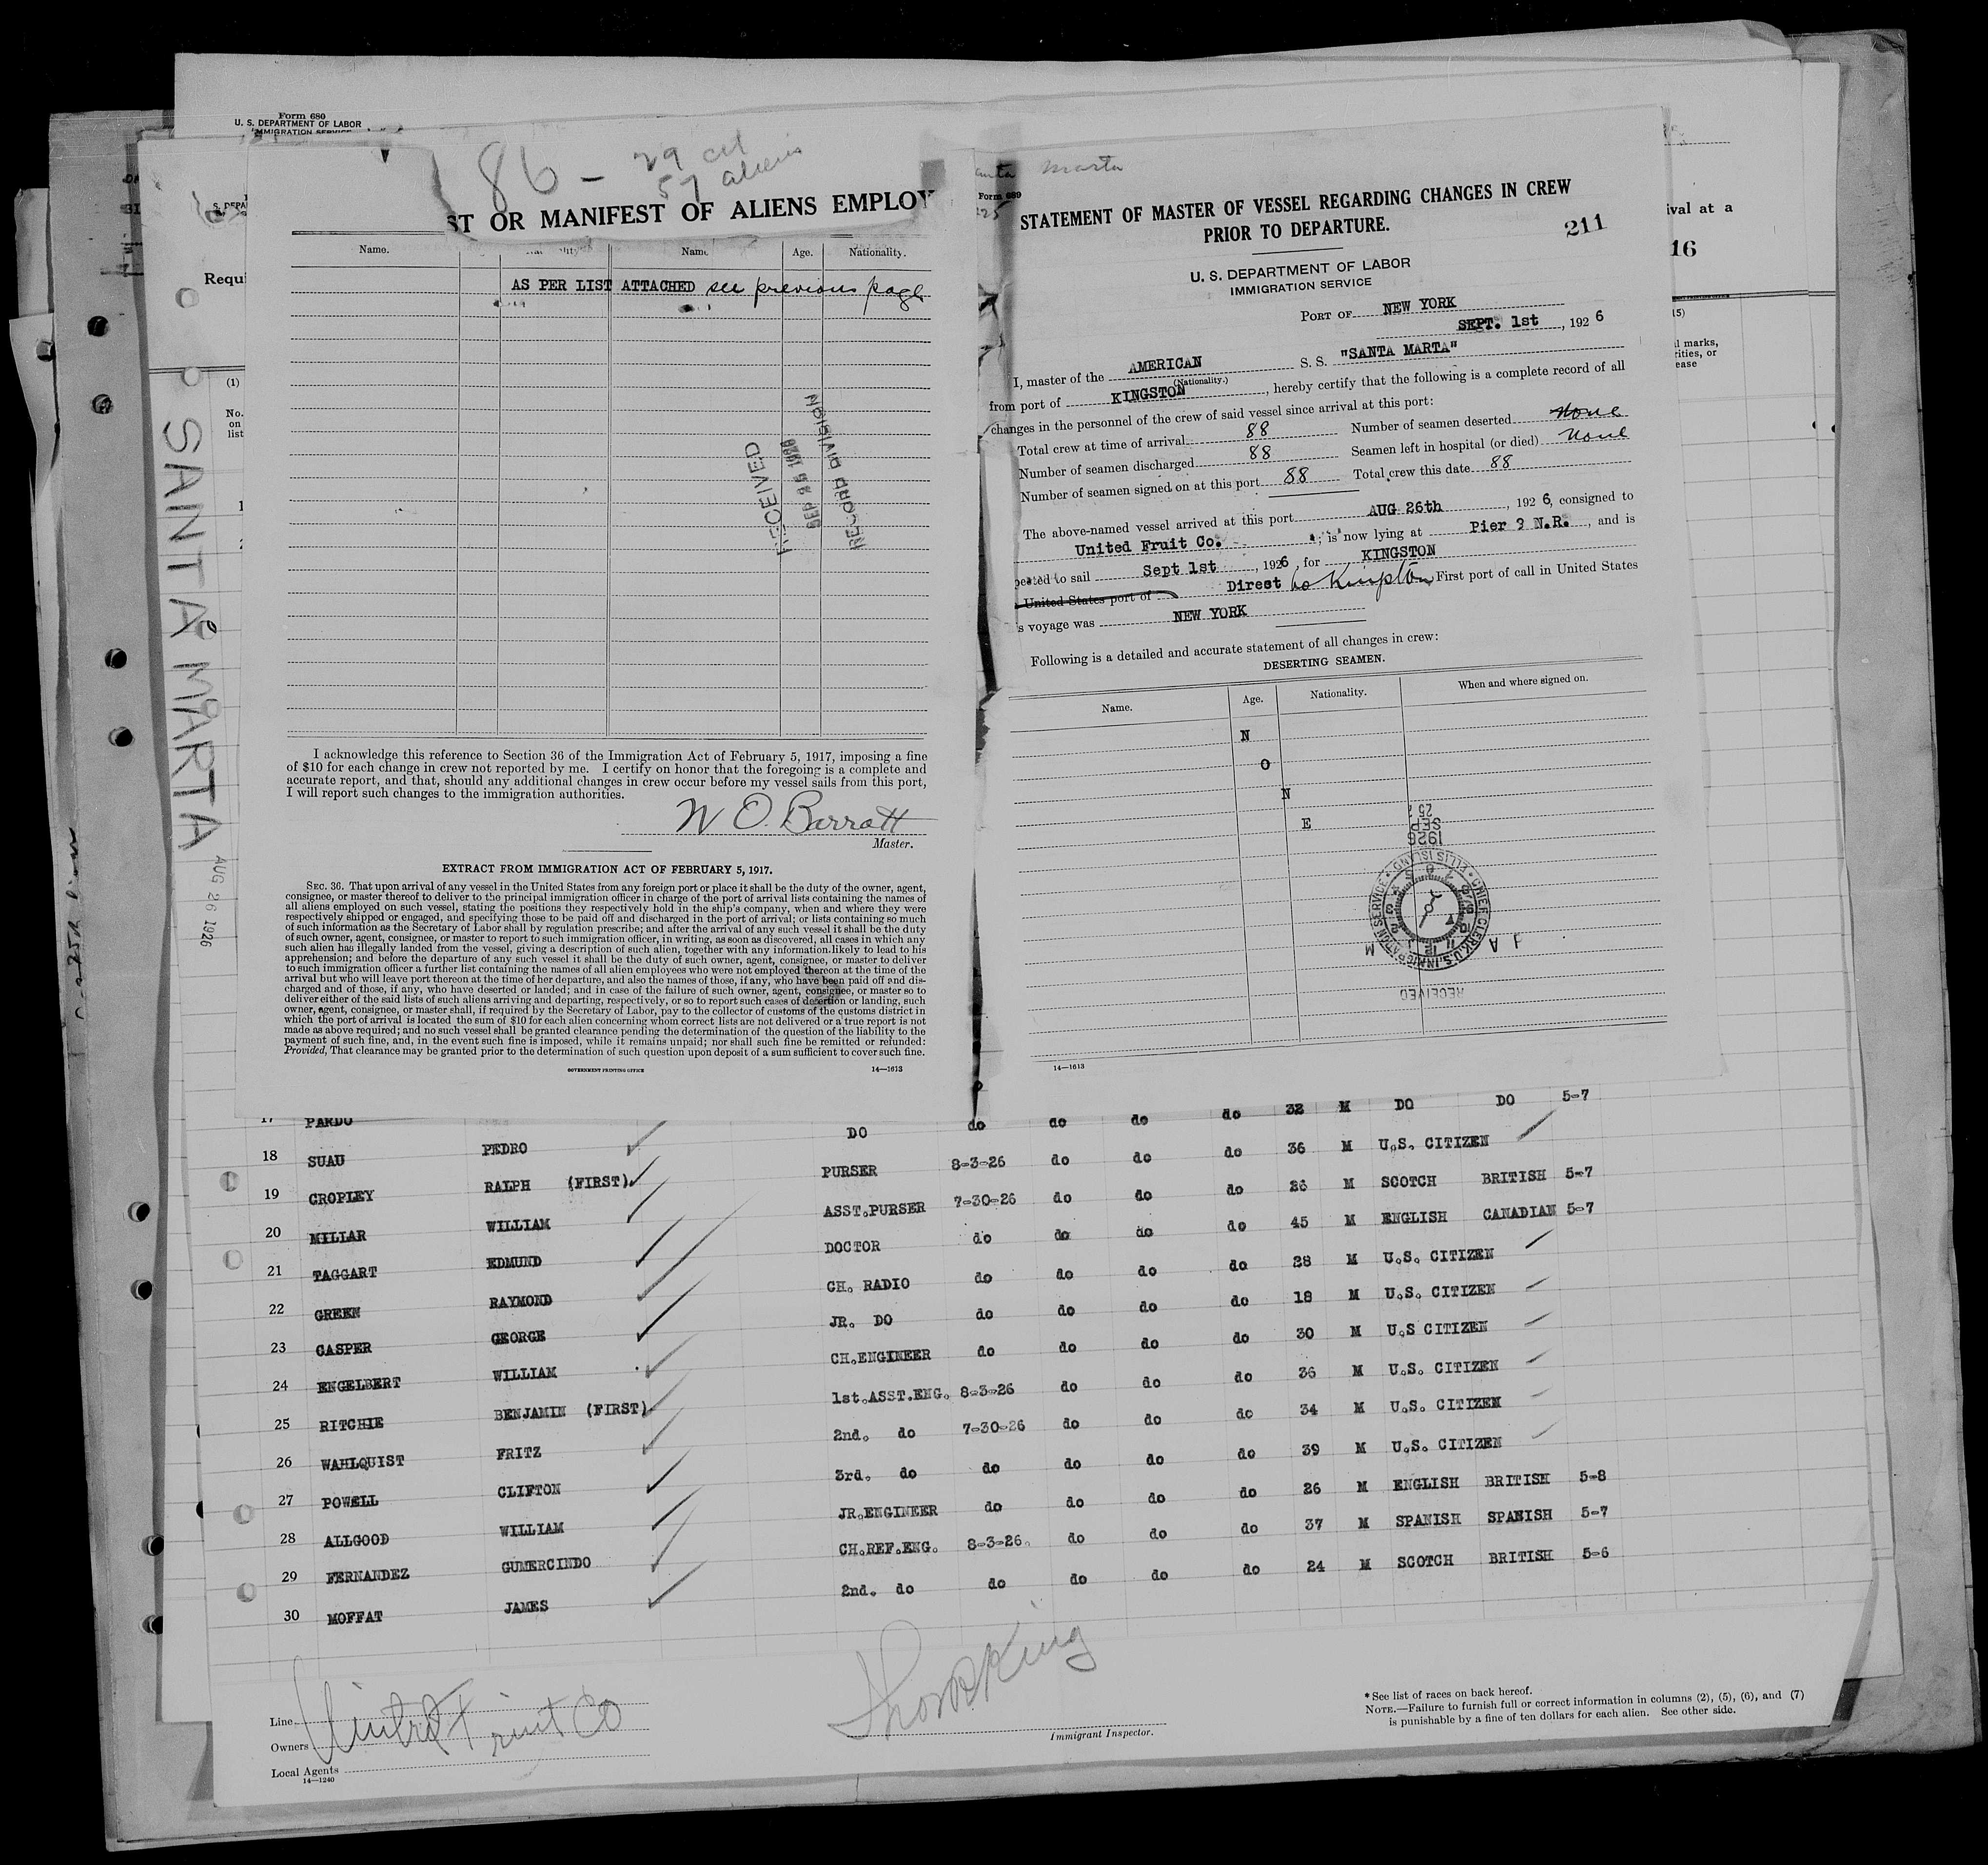 Form 680
U. S. DEPARTMENT OF LABOR
IMMIGRATION SERVICE
86 - 29 cit
57 aliens
ST OR MANIFEST OF ALIENS EMPLOY
Requi
(1)
No.
on
list
SANTA MARTA
AUG 26 1926
Name. Name. Age. Nationality.
AS PER LIST ATTACHED see previous page
RECEIVED
SEP 25 1926
RECORD DIVISION
I acknowledge this reference to Section 36 of the Immigration Act of February 5, 1917, imposing a fine
of $10 for each change in crew not reported by me. I certify on honor that the foregoing is a complete and
accurate report, and that, should any additional changes in crew occur before my vessel sails from this port,
I will report such changes to the immigration authorities.
W O. Barrott
Master.
EXTRACT FROM IMMIGRATION ACT OF FEBRUARY 5, 1917.
SEC. 36. That upon arrival of any vessel in the United States from any foreign port or place it shall be the duty of the owner, agent,
consignee, or master thereof to deliver to the principal immigration officer in charge of the port of arrival lists containing the names of
all aliens employed on such vessel, stating the positions they respectively hold in the ship's company, when and where they were
respectively shipped or engaged, and specifying those to be paid off and discharged in the port of arrival; or lists containing so much
of such information as the Secretary of Labor shall by regulation prescribe; and after the arrival of any such vessel it shall be the duty
of such owner, agent, consignee, or master to report to such immigration officer, in writing, as soon as discovered, all cases in which any
such alien has illegally landed from the vessel, giving a description of such alien, together with any information likely to lead to his
apprehension; and before the departure of any such vessel it shall be the duty of such owner, agent, consignee, or master to deliver
to such immigration officer a further list containing the names of all alien employees who were not employed thereon at the time of the
arrival but who will leave port thereon at the time of her departure, and also the names of those, if any, who have been paid off and dis-
charged and of those, if any, who have deserted or landed; and in case of the failure of such owner, agent, consignee, or master so to
deliver either of the said lists of such aliens arriving and departing, respectively, or so to report such cases of desertion or landing, such
owner, agent, consignee, or master shall, if required by the Secretary of Labor, pay to the collector of customs of the customs district in
which the port of arrival is located the sum of $10 for each alien concerning whom correct lists are not delivered or a true report is not
made as above required; and no such vessel shall be granted clearance pending the determination of the question of the liability to the
payment of such fine, and, in the event such fine is imposed, while it remains unpaid; nor shall such fine be remitted or refunded:
Provided, That clearance may be granted prior to the determination of such question upon deposit of a sum sufficient to cover such fine.
GOVERNMENT PRINTING OFFICE 14—1613
Marta
Form 689
STATEMENT OF MASTER OF VESSEL REGARDING CHANGES IN CREW
PRIOR TO DEPARTURE.
211
U. S. DEPARTMENT OF LABOR
IMMIGRATION SERVICE
PORT OF NEW YORK
SEPT. 1st, 1926
I, master of the AMERICAN S. S. "SANTA MARTA"
(Nationality.)
from port of KINGSTON, hereby certify that the following is a complete record of all
changes in the personnel of the crew of said vessel since arrival at this port:
Total crew at time of arrival 88 Number of seamen deserted None
Number of seamen discharged 88 Seamen left in hospital (or died) None
Number of seamen signed on at this port 88 Total crew this date 88
The above-named vessel arrived at this port AUG 26th, 1926, consigned to
United Fruit Co.; is now lying at Pier 9 N.R., and is
pected to sail Sept 1st, 1926, for KINGSTON
United States port of Direct to Kingston First port of call in United States
s voyage was NEW YORK
Following is a detailed and accurate statement of all changes in crew:
DESERTING SEAMEN.
Name. Age. Nationality. When and where signed on.
N
O
N
E
SEP 25
1926
CHIEF CLERK, U.S. IMMIGRATION SERVICE • ELLIS ISLAND •
RECEIVED
14—1613
ival at a
16
(15)
l marks,
rities, or
ease
17 PARDO DO do do do do 32 M DO DO 5-7
18 SUAU PEDRO PURSER 8-3-26 do do do 36 M U.S. CITIZEN
19 CROPLEY RALPH (FIRST) ASST.PURSER 7-30-26 do do do 26 M SCOTCH BRITISH 5-7
20 MILLAR WILLIAM DOCTOR do do do do 45 M ENGLISH CANADIAN 5-7
21 TAGGART EDMUND CH. RADIO do do do do 28 M U.S. CITIZEN
22 GREEN RAYMOND JR. DO do do do do 18 M U.S. CITIZEN
23 CASPER GEORGE CH.ENGINEER do do do do 30 M U.S CITIZEN
24 ENGELBERT WILLIAM 1st.ASST.ENG. 8-3-26 do do do 36 M U.S. CITIZEN
25 RITCHIE BENJAMIN (FIRST) 2nd. do 7-30-26 do do do 34 M U.S. CITIZEN
26 WAHLQUIST FRITZ 3rd. do do do do do 39 M U.S. CITIZEN
27 POWELL CLIFTON JR.ENGINEER do do do do 26 M ENGLISH BRITISH 5-8
28 ALLGOOD WILLIAM CH.REF.ENG. 8-3-26 do do do 37 M SPANISH SPANISH 5-7
29 FERNANDEZ GUMERCINDO 2nd. do do do do do 24 M SCOTCH BRITISH 5-6
30 MOFFAT JAMES
Line
Owners United Fruit Co
Local Agents
14—1240
Immigrant Inspector.
* See list of races on back hereof.
NOTE.—Failure to furnish full or correct information in columns (2), (5), (6), and (7)
is punishable by a fine of ten dollars for each alien. See other side.